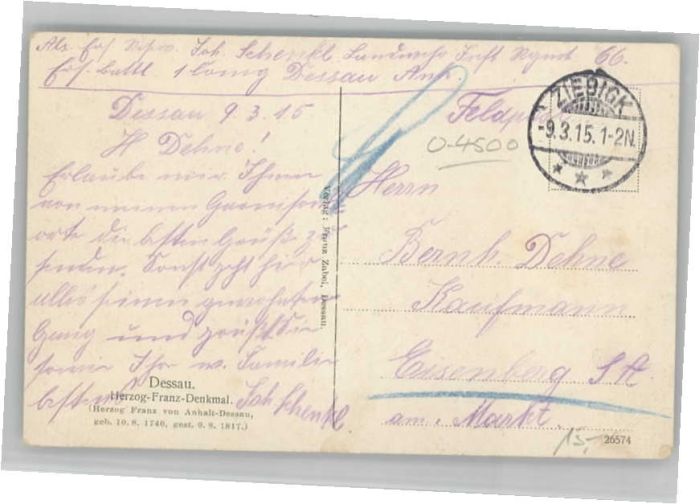 Abs. Ers. Joh. Schenkl Landwehr Inft Regmt 66.
Ers. Battl 1 Comp Dessau Anh.
Dessau 9.3.15
H Dehne!
Erlaube mir Ihnen
von meinem Garnisons
orte die besten Grüße zu
senden. Sonst geht hier
alles seinen gewohnten
Gang und grüßt Sie
sowie Ihr w. Familie
bestens Joh Schenkl
Dessau.
Herzog-Franz-Denkmal.
(Herzog Franz von Anhalt-Dessau,
geb. 10. 8. 1740, gest. 9. 8. 1817.)
Verlag: Franz Zabel, Dessau.
Feldpost
ZIEBIGK
-9.3.15.1-2N.
O-4500
Herrn
Bernh. Dehne
Kaufmann
Eisenberg S/A
am Markt.
15,-
26574